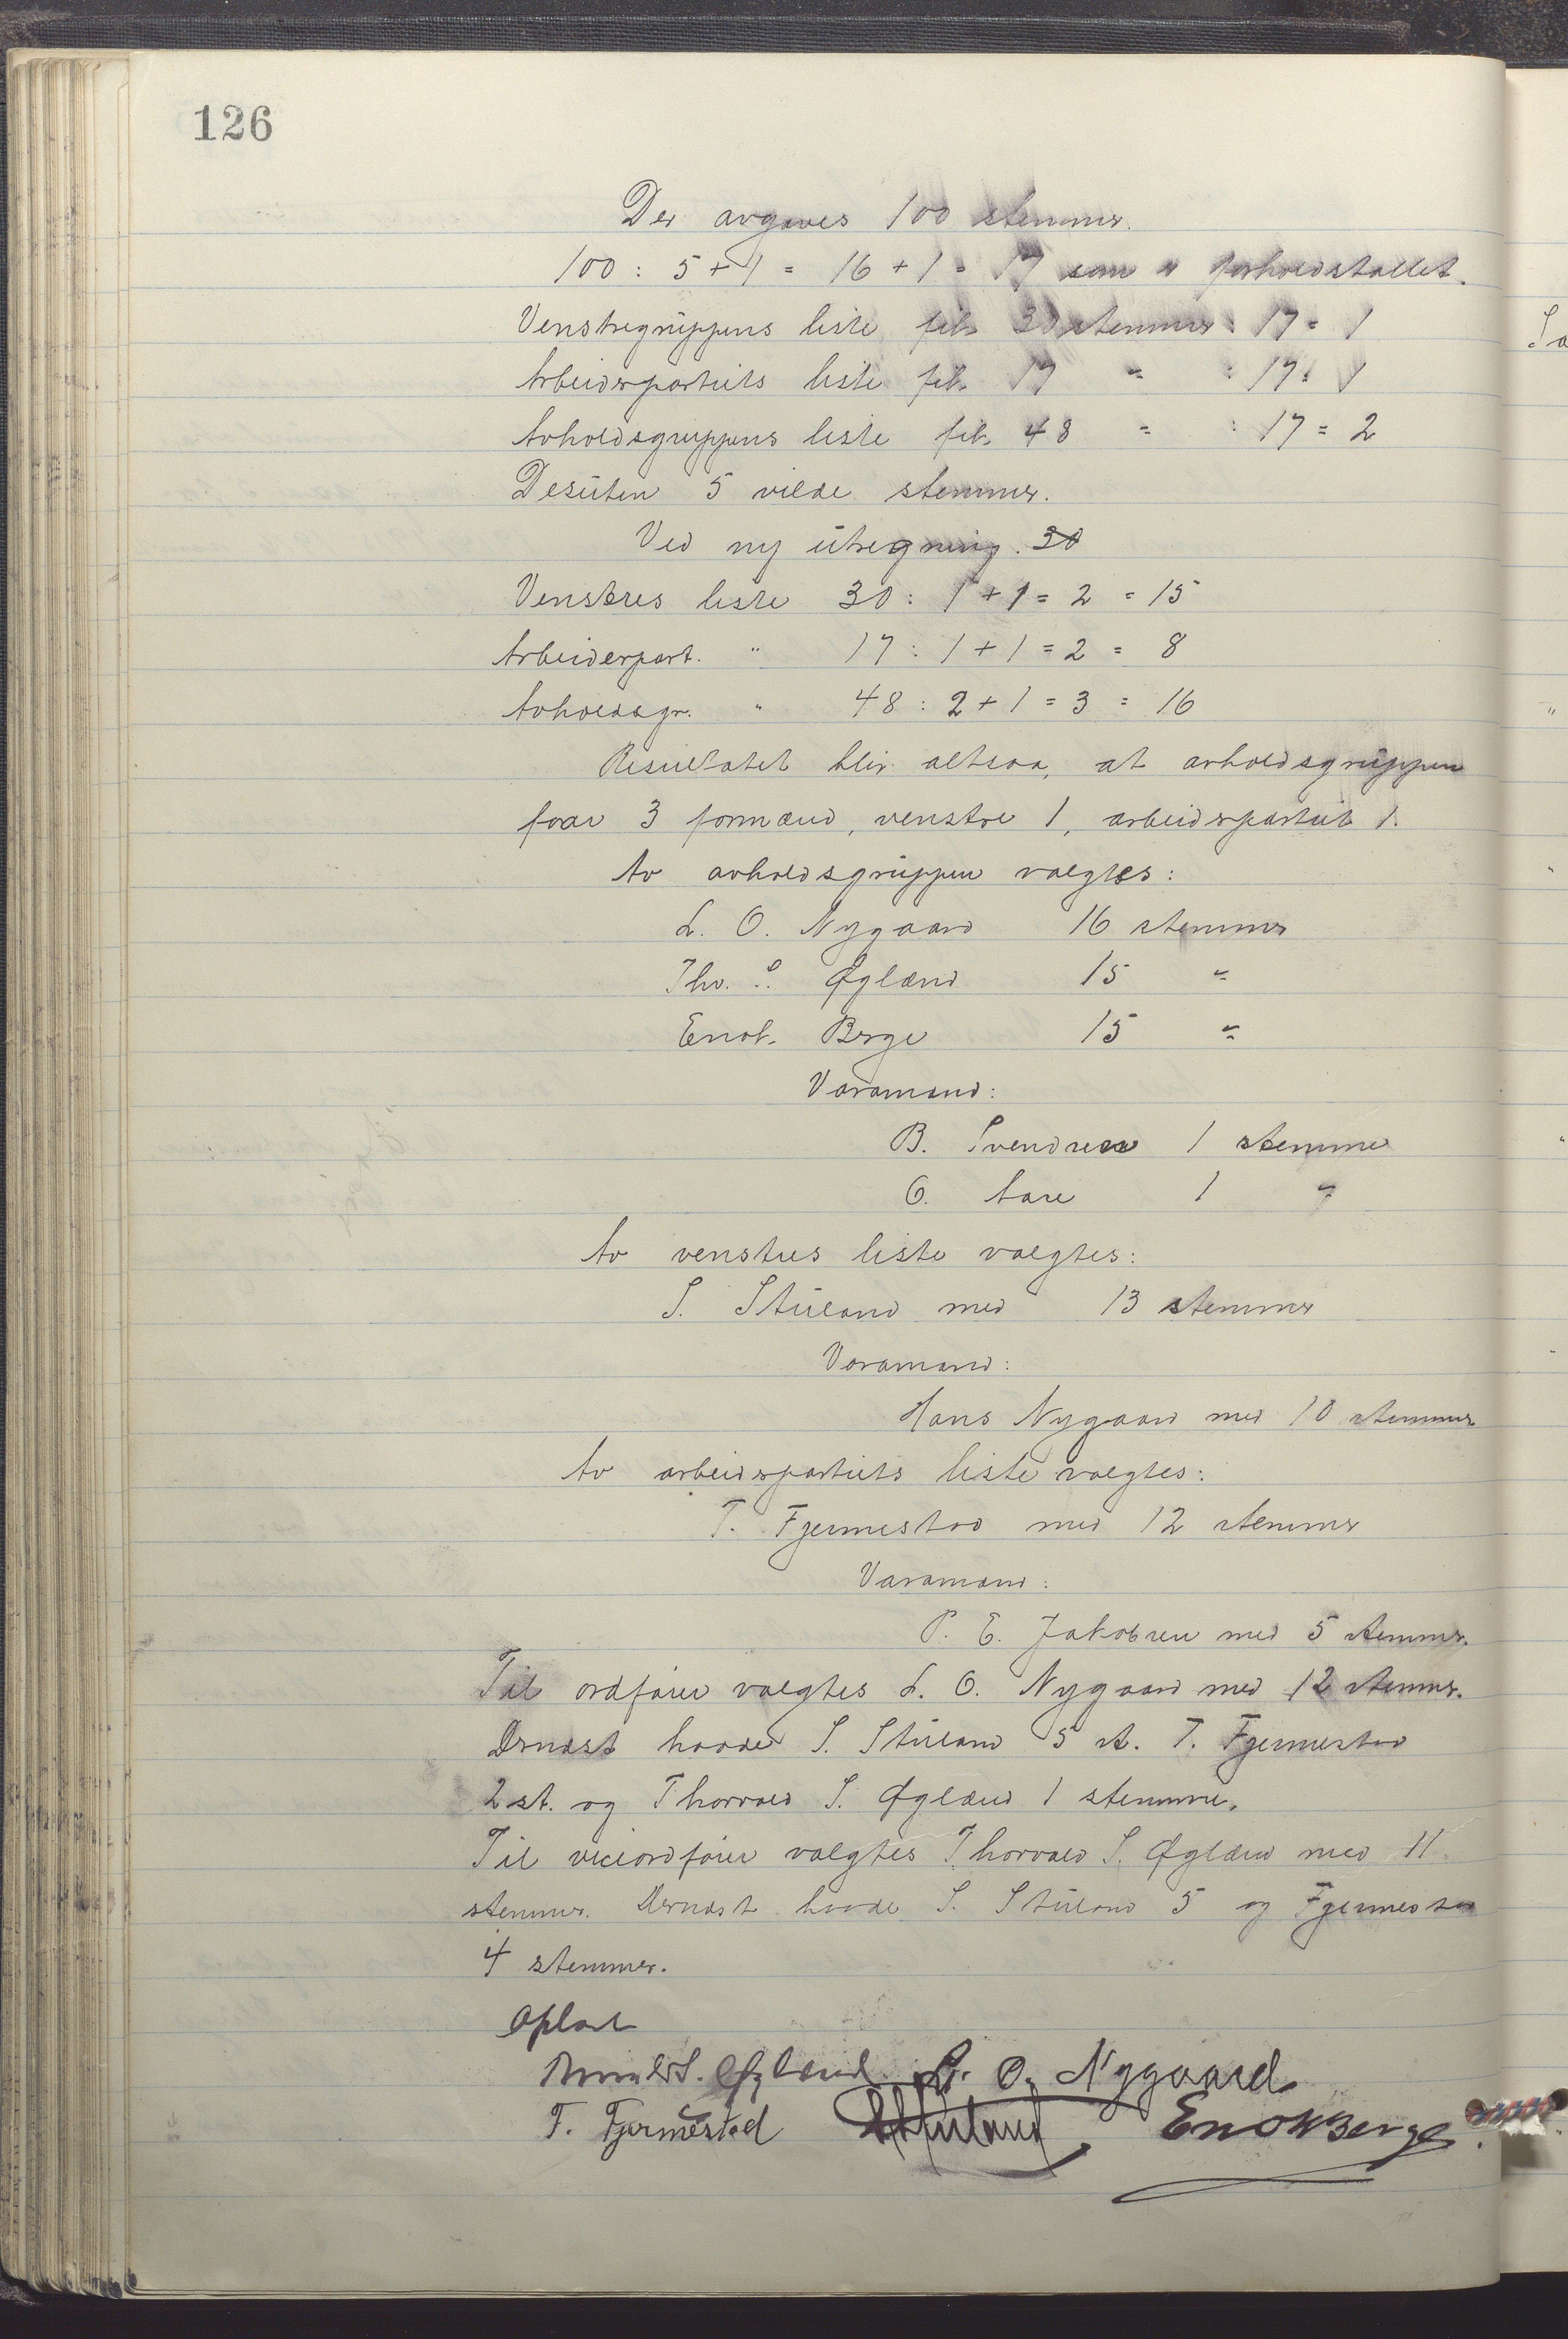 126
Der avgaves 100 stemmer.
100 : 5 + 1 = 16 + 1 = 17 som er forholdstallet.
Venstregruppens liste fik 30 stemmer : 17 = 1
Arbeiderpartiets liste fik 17 " : 17 = 1
Avholdsgruppens liste fik 48 " : 17 = 2
Desuten 5 vilde stemmer.
Ved ny utregning. 30
Venstres liste 30 : 1 + 1 = 2 = 15
Arbeiderpart. " 17 : 1 + 1 = 2 = 8
Avholdsgr. " 48 : 2 + 1 = 3 = 16
Resultatet blir altsaa, at avholdsgruppen
faar 3 formænd, venstre 1, arbeiderpartiet 1.
Av avholdsgruppen valgtes:
L. O. Nygaard 16 stemmer
Thv. S. Øglænd 15 "
Enok Berge 15 "
Varamænd:
B. Svendsen 1 stemme
O. Aase 1 "
Av venstres liste valgtes:
S. Stueland med 13 stemmer
Varamand:
Hans Nygaard med 10 stemmer
Av arbeiderpartiets liste valgtes:
T. Fjermestad med 12 stemmer
Varamand:
P. E. Jakobsen med 5 stemmer.
Til ordfører valgtes L. O. Nygaard med 12 stemmer.
Dernæst havde S. Stueland 5 st. T. Fjermestad
2 st. og Thorvald S. Øglænd 1 stemme.
Til viceordfører valgtes Thorvald S. Øglænd med 11
stemmer. Dernæst havde S. Stueland 5 og Fjermestad
4 stemmer.
Oplæst
S. Øglænd L. O. Nygaard
T. Fjermestad S. Stueland Enok Berge